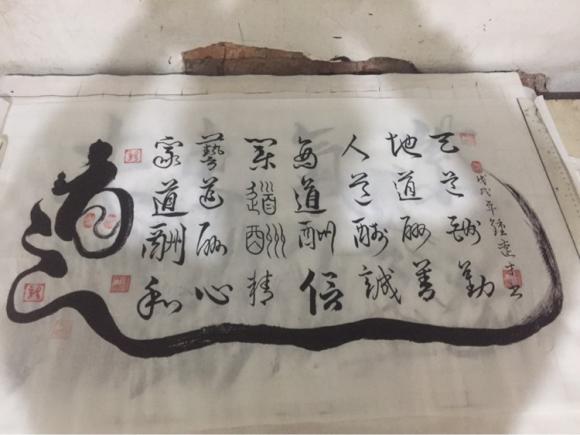 戊戌年
天道酬勤
地道酬善
人道酬誠
商道酬信
業道酬精
藝道酬心
家道酬和
道